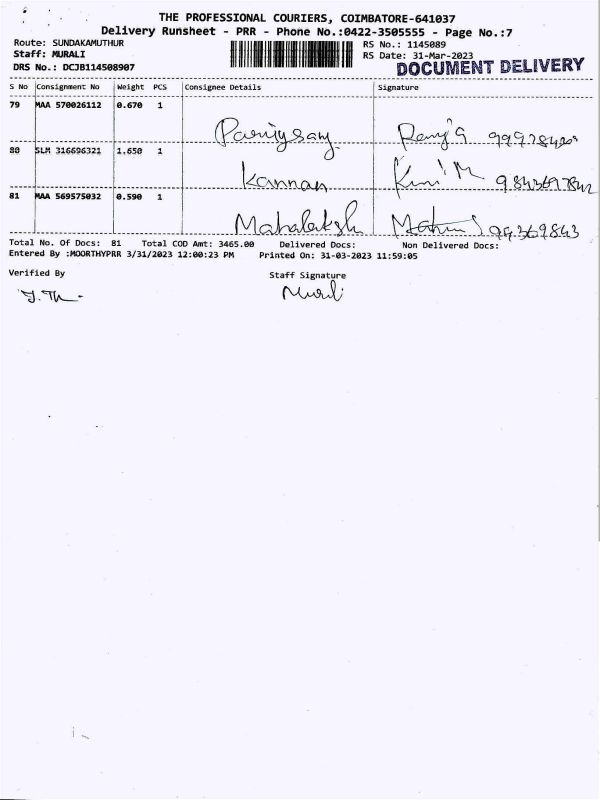 THE PROFESSIONAL COURIERS, COIMBATORE-641037
Delivery Runsheet - PRR - Phone No.:0422-3505555 - Page No.:7
Route: SUNDAKAMUTHUR RS No.: 1145089
Staff: MURALI RS Date: 31-Mar-2023
DRS No.: DCJB114508907 DOCUMENT DELIVERY
S No Consignment No Weight PCS Consignee Details Signature
79 MAA 570026112 0.670 1
80 SLM 316696321 1.650 1
Kannan
81 MAA 569575032 0.590 1
Total No. Of Docs: 81 Total COD Amt: 3465.00 Delivered Docs: Non Delivered Docs:
Entered By :MOORTHYPRR 3/31/2023 12:00:23 PM Printed On: 31-03-2023 11:59:05
Verified By Staff Signature
Murali